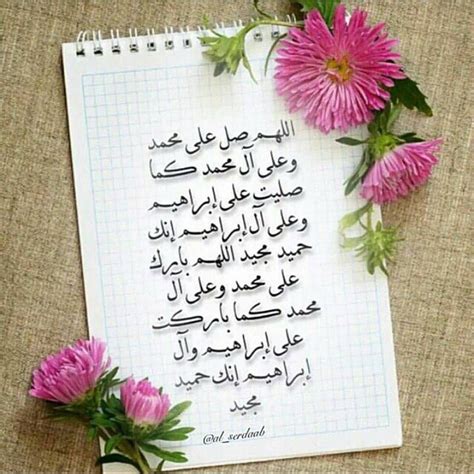 اللهم صل على محمد
وعلى آل محمد كما
صليت على إبراهيم
وعلى آل إبراهيم إنك
حميد مجيد اللهم بارك
على محمد وعلى آل
محمد كما باركت
على إبراهيم وآل
إبراهيم إنك حميد
مجيد
@al_serdaab